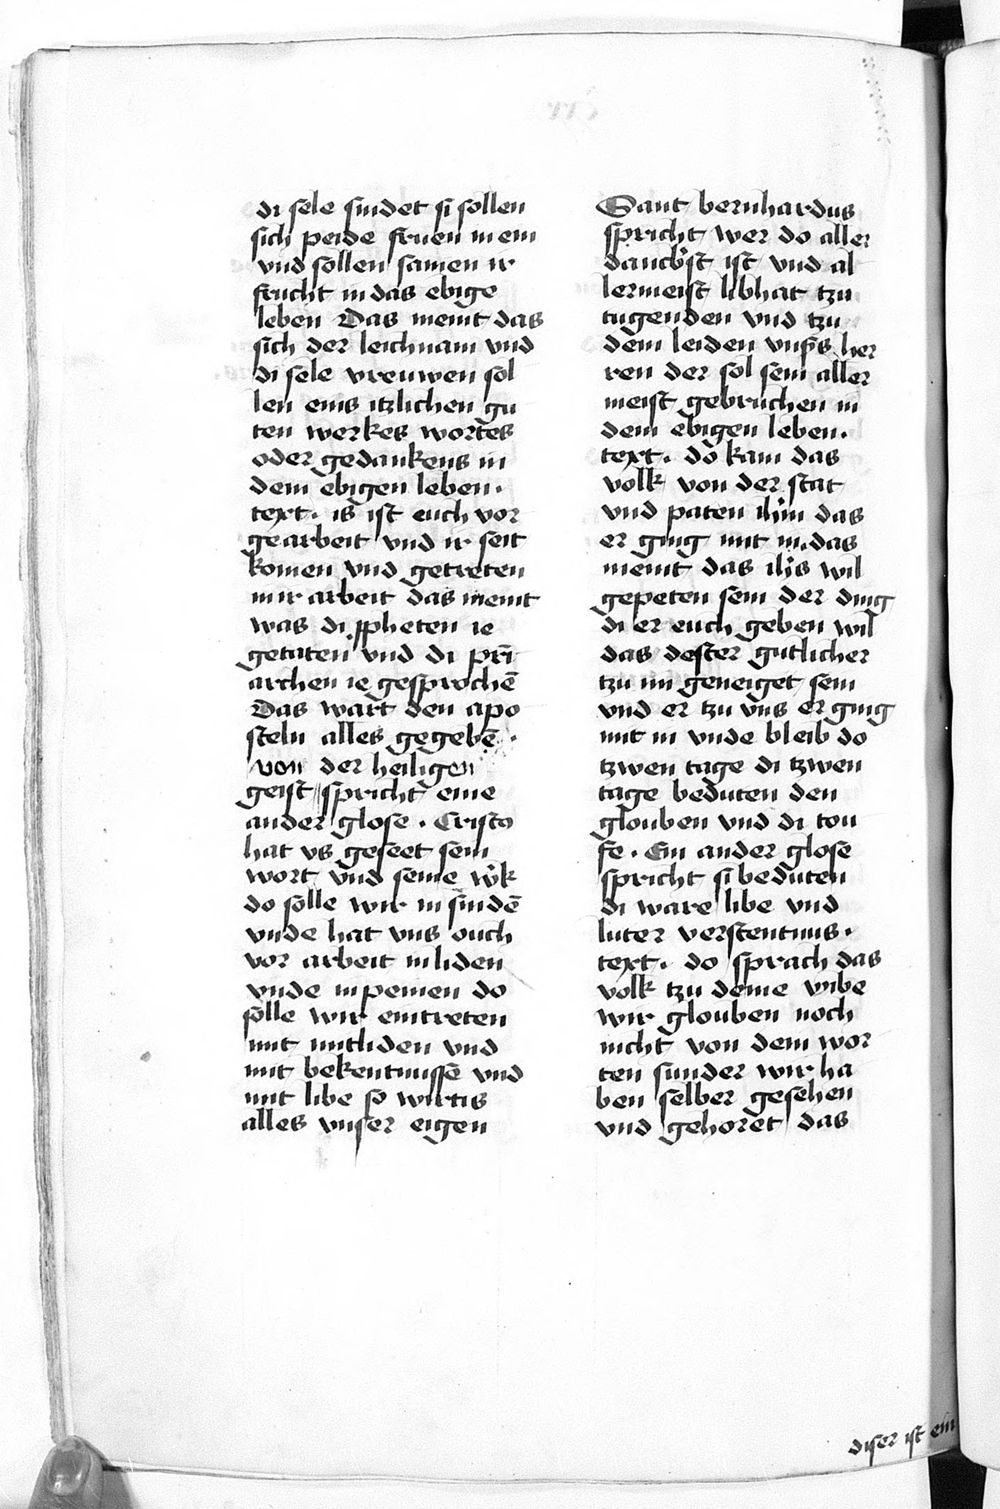 di sele sindet si sollen
sich peide freuen in ein
vnd sollen samen ir
frucht in das ebige
leben Das meint das
sich der leichnam vnd
di sele vreuwen sol
len eins itzlichen gu
ten werkes wortes
oder gedankens in
dem ebigen leben.
text. is ist euch vor
gearbeit vnd ir seit
komen vnd getreten
in ir arbeit das meint
was di ꝓpheten ie
getaten vnd di pꝛi
archen ie gesprochē
Das wart den apo
steln alles gegebē.
von der heiligen
geist spricht eine
ander glose. Cristo
hat vs geseet sein
wort vnd seine w̓k
do solle wir in sindē
vnde hat vns ouch
vor arbeit in liden
vnde in peinen do
solle wir eintreten
mit mitliden vnd
mit bekentnissē vnd
mit libe so wirtis
alles vnser eigen
Sant bernhardus
spricht wer do aller
danckb̓st ist vnd al
lermeist libhat tzu
tugenden vnd tzu
dem leiden vnsˀs her
ren der sol sein aller
meist gebruchen in
dem ebigen leben.
text. do kam das
volk von der stat
vnd paten ih̄m das
er ging mit in. das
meint das ih̄s wil
gepeten sein der ding
di er euch geben wil
das dester gutlicher
tzu im geneiget sein
vnd er tzu vns er ging
mit in vnde bleib do
tzwen tage di tzwen
tage beduten den
glouben vnd di tou
fe. Ein ander glose
spricht si beduten
di ware libe vnd
luter verstentnis.
text. do sprach das
volk tzu deme wibe
wir glouben noch
nicht von dem wor
ten sunder wir ha
ben selber gesehen
vnd gehoret das
diser ist ein